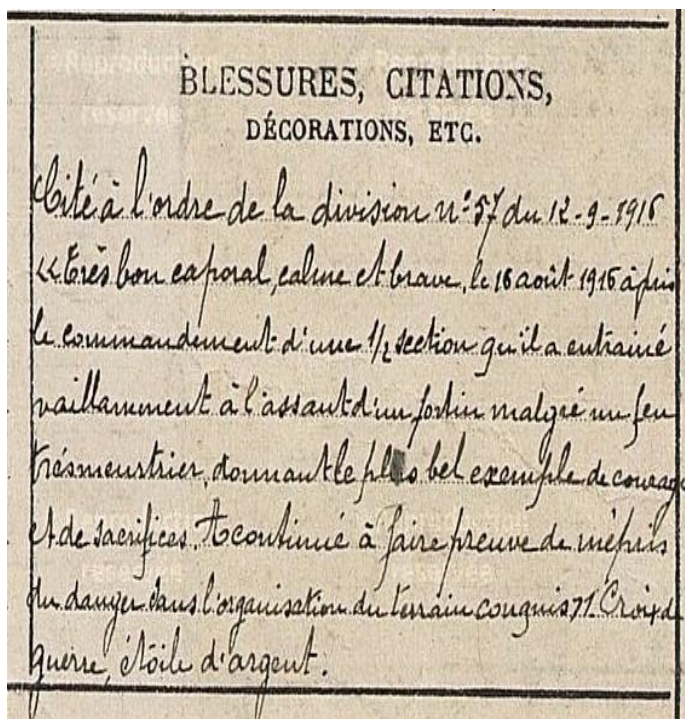 BLESSURES, CITATIONS,
DÉCORATIONS, ETC.
Cité à l'ordre de la division n° 57 du 12-9-1916
<<Très bon caporal, calme et brave, le 16 août 1916 à pris
le commandement d'une 1/2 section qu'il a entrainé
vaillamment à l'assaut d'un fortin malgré un feu
très meurtrier, donnant le plus bel exemple de courage
et de sacrifices. A continué à faire preuve de mépris
du danger dans l'organisation du terrain conquis >>. Croix de
guerre, étoile d'argent.